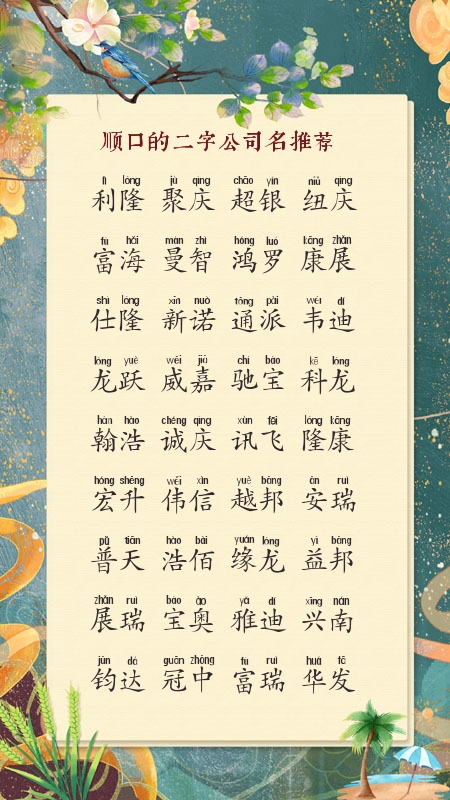 顺口的二字公司名推荐
lì lóng jù qìng chāo yín niǔ qìng
利隆 聚庆 超银 纽庆
fù hǎi màn zhì hóng luó kāng zhǎn
富海 曼智 鸿罗 康展
shì lóng xīn nuò tōng pài wéi dí
仕隆 新诺 通派 韦迪
lóng yuè wēi jiā chí bǎo kē lóng
龙跃 威嘉 驰宝 科龙
hàn hào chéng qìng xùn fēi lóng kāng
翰浩 诚庆 讯飞 隆康
hóng shēng wěi xìn yuè bāng ān ruì
宏升 伟信 越邦 安瑞
pǔ tiān hào bǎi yuán lóng yì bāng
普天 浩佰 缘龙 益邦
zhǎn ruì bǎo ào yǎ dí xīng nán
展瑞 宝奥 雅迪 兴南
jūn dá guān zhōng fù ruì huá fā
钧达 冠中 富瑞 华发